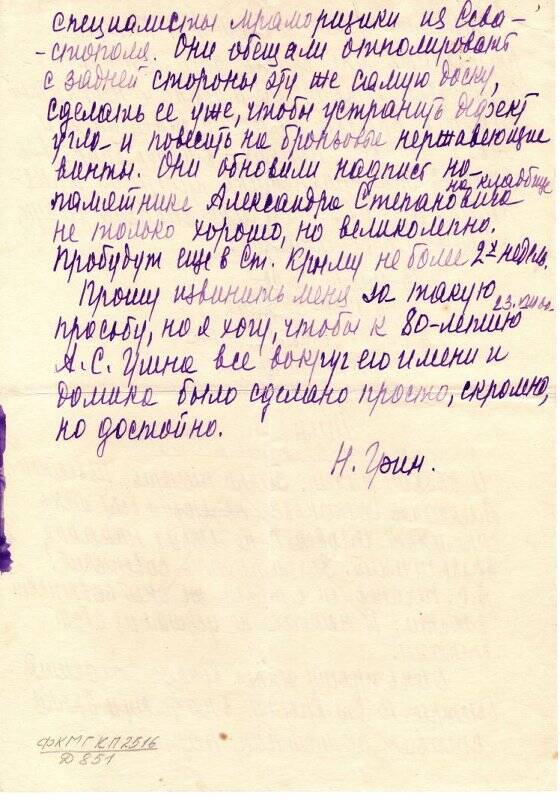 специалисты мраморщики из Сева-
-стополя. Они обещали отполировать
с задней стороны эту же самую доску,
сделать ее уже, чтобы устранить дефект
угла и повесить на бронзовые нержавеющие
винты. Они обновили надпись на
памятнике Александра Степановича на кладбище
не только хорошо, но великолепно.
Пробудут еще в Ст. Крыму не более 2х недель.
Прошу извинить меня за такую
просьбу, но я хочу, чтобы к 80-летию 23.
А.С. Грина все вокруг его имени и
домика было сделано просто, скромно,
но достойно.
Н. Грин.
ФКМГ КП 2516
Д 851